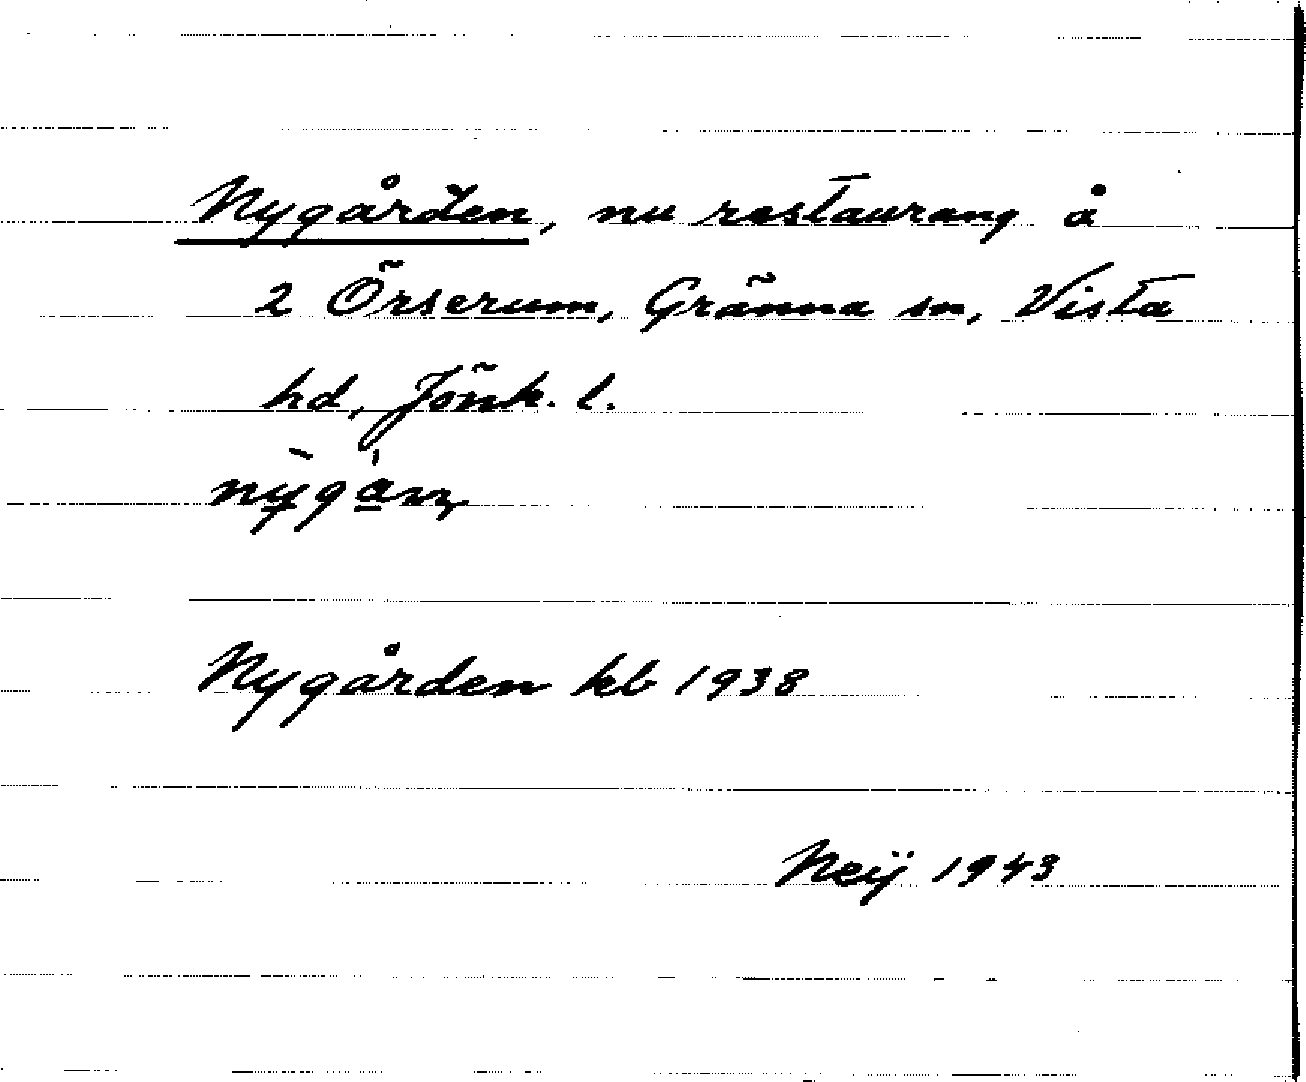 Nygården, nu restaurang å
2 Örserum, Gränna sn, Vista
hd, Jönk. l.
Nygården kb 1938
Neij 1943